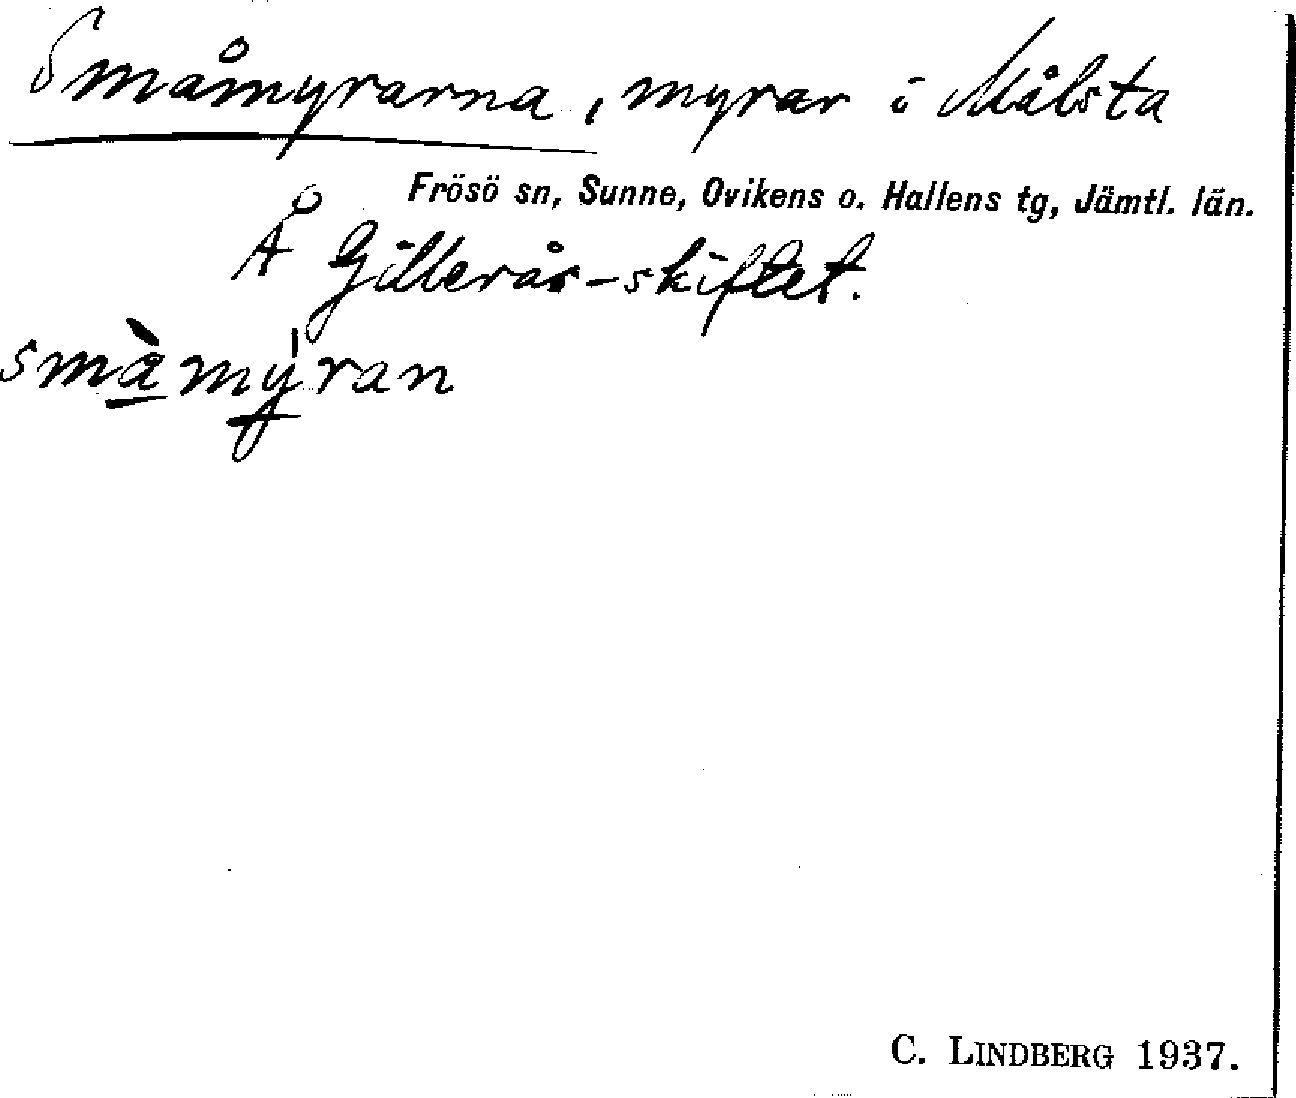 Småmyrarna, myrar i Målsta
Frösö sn, Sunne, Ovikens o. Hallens tg, Jämtl. län.
Å Gillerås-skiftet.
smàmýran
C. LINDBERG 1937.